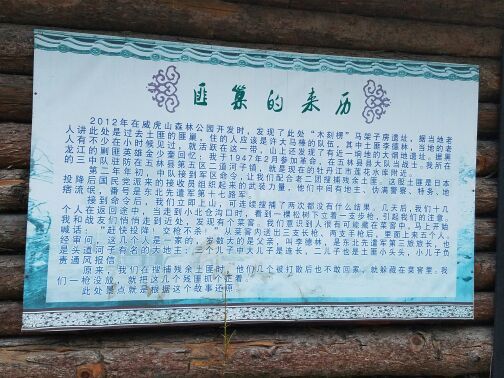 匪巢的来历
2012年在威虎山森林公园开发时，发现了此处“木刻楞”马架子房遗址，据当地老
人讲此处是过去土匪的匪巢，住的人应该是许大马棒的队伍，其中土匪李德林，当地老
人有不少在小时候见过，就活跃在这一带，山上还发现了有近二垧地的大烟地遗址。据黑
龙江的剿匪英雄金少泰回忆：我于1947年2月参加革命，在五林县大队当战士，我所在
的三中队驻防在五林县第五区二道河子镇，就是现在的牡丹江市莲花水库附近。
第二年年初，中队接到军区命令，让我们配合老二团搜捕残余土匪。这股土匪是日本
投降后国民党派来的接收员组织起来的武装力量，他们中间有地主、伪满警察、特务、地
痞流氓，番号是东北先遣军第十七路军。
接到命令后，我们立即上山，可连续搜捕了两次都没有什么结果。几天后，我们十几
个人在返回途中，当走到小北仓沟口时，看到一棵松树下立着一支步枪，引起我们的注意。
我和战友们悄悄走到近处，发现有个菜窖。我们意识到人很有可能藏在菜窖中，马上开始
喊话：“赶快投降！交枪不杀！”从菜窖内送出三支长枪、两支手枪后，里面上来五个人。
经审问，这几个人是一家的，岁数大的是父亲，叫李德林，是东北先遣军第三旅旅长，也
是头道河子有名的大地主；三个儿子中大儿子是连长，二儿子也是土匪小头头，小儿子负
责通风报信。
原来，我们在搜捕残余土匪时，他们几个被打散后也不敢回家，就躲藏在菜窖里。我
们一枪没放，就把这几个残匪抓个正着。
此处景点就是根据这个故事还原。